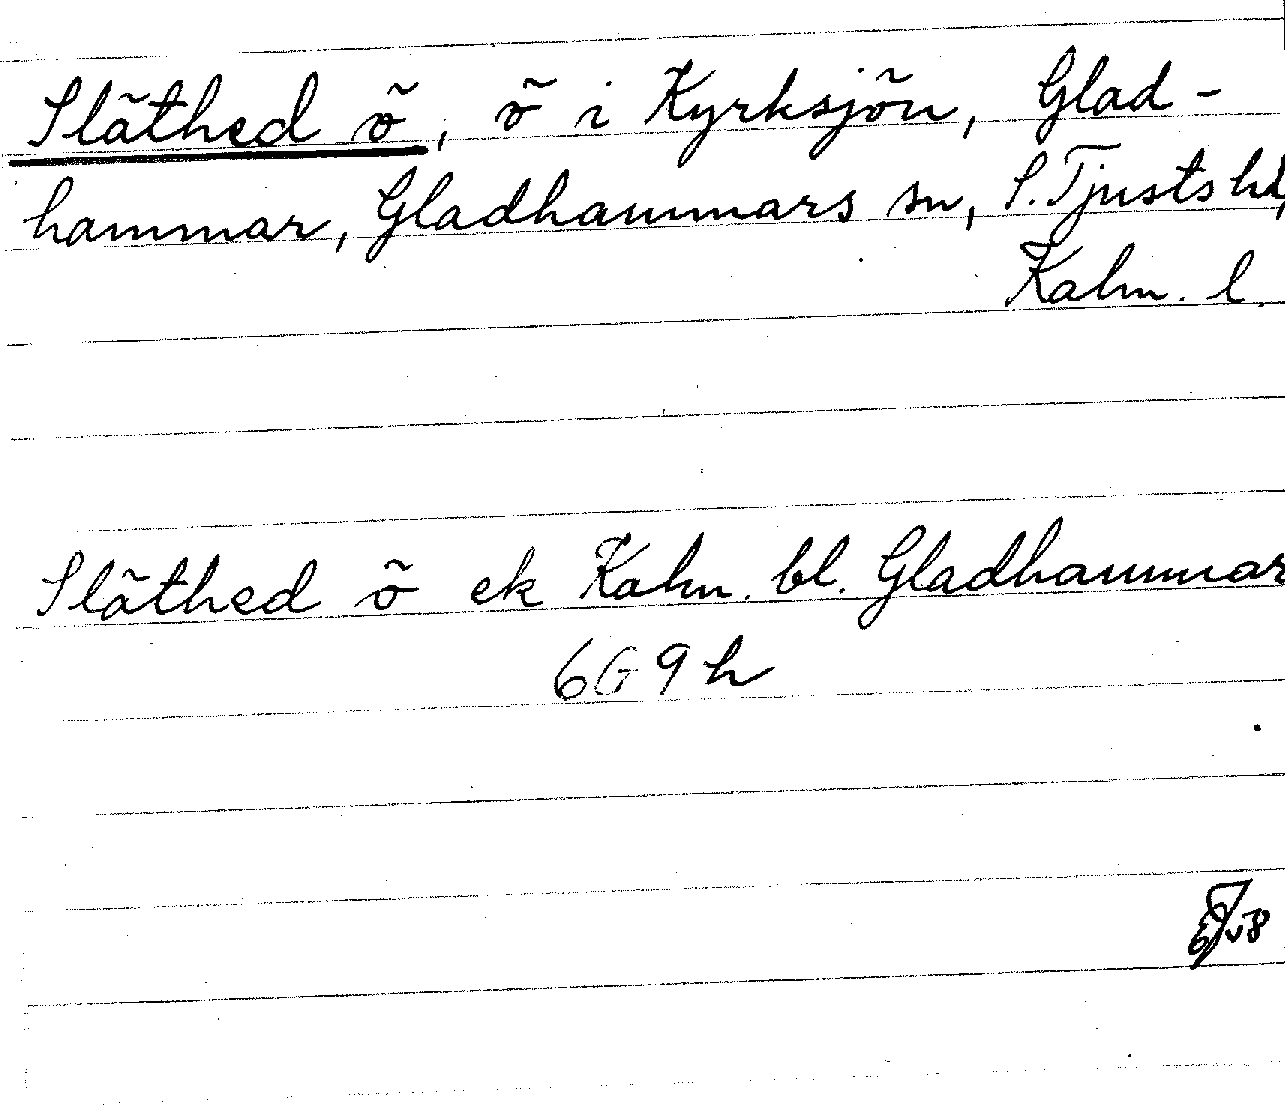 Släthed ö, ö i Kyrksjön, Glad-
hammar, Gladhammars sn, S. Tjusts hd,
Kalm. l.
Släthed ö ek Kalm. bl. Gladhammar
6G 9h